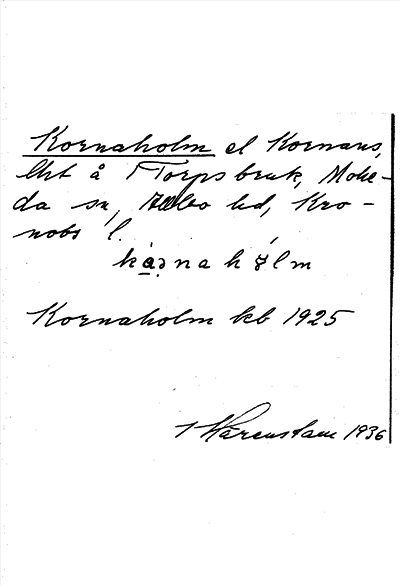 Kornaholm el Kornans,
lht å Torpsbruk, Mohe-
da sn, Allbo hd, Kro-
nobs l.
Kornaholm kb 1925
Härenstam 1936